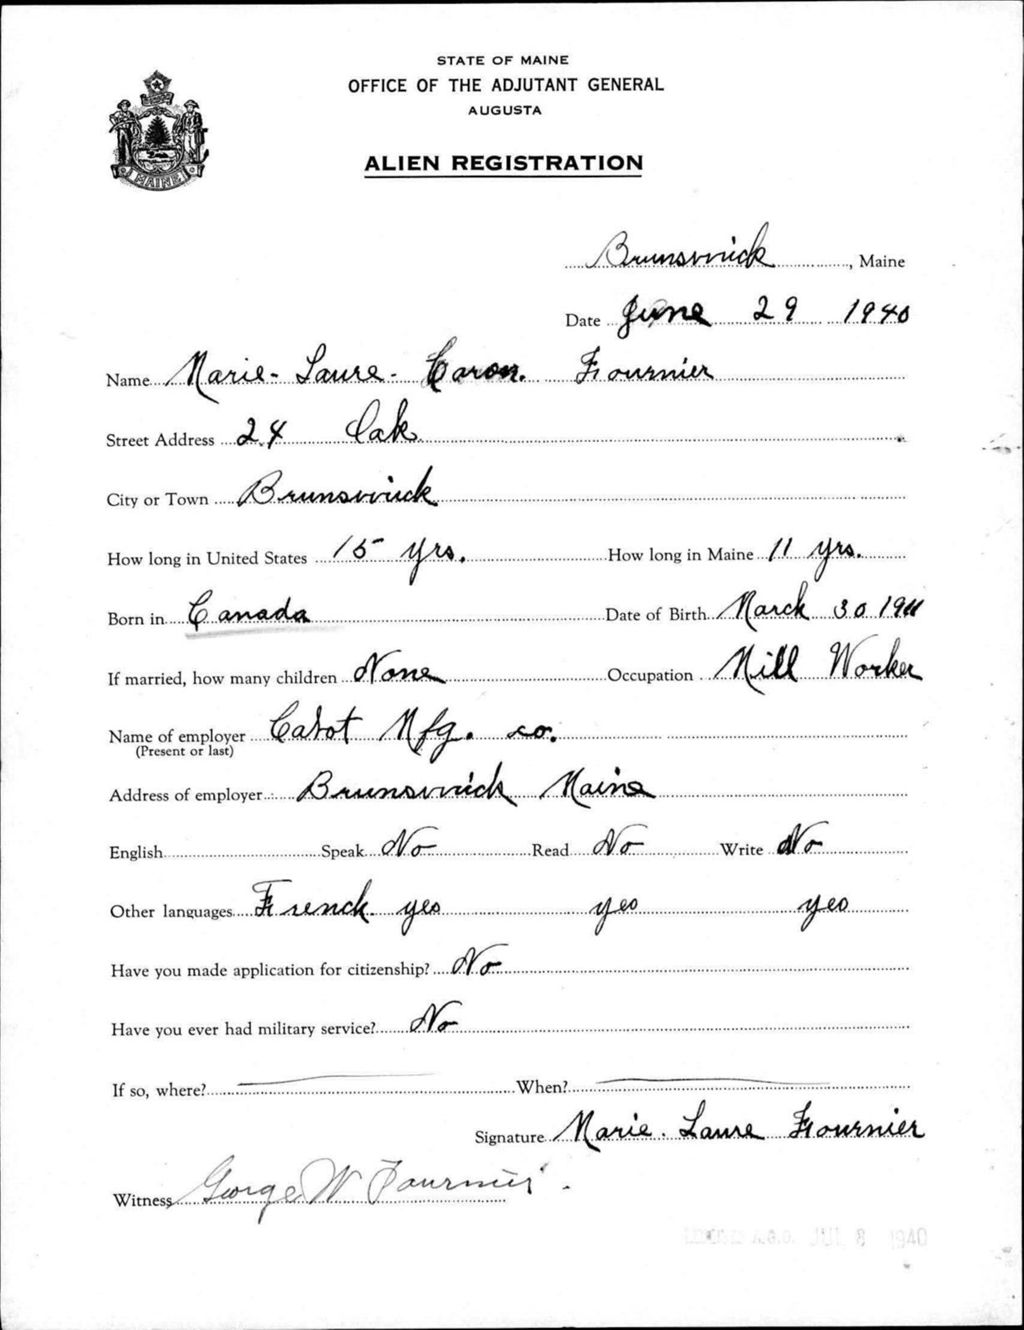 STATE OF MAINE
OFFICE OF THE ADJUTANT GENERAL
AUGUSTA
ALIEN REGISTRATION
MAINE
Brunswick, Maine
Date June 29 1940
Name Marie-Laure-Caron. Fournier
Street Address 24 Oak
City or Town Brunswick
How long in United States 15 yrs. How long in Maine 11 yrs.
Born in Canada Date of Birth March 30 1911
If married, how many children None Occupation Mill Worker
Name of employer Cabot Mfg. co.
(Present or last)
Address of employer Brunswick Maine
English Speak No Read No Write No
Other languages French yes yes yes
Have you made application for citizenship? No
Have you ever had military service? No
If so, where? When?
Signature Marie. Laure Fournier
Witness George W Fournier
A.G.O. JUL 8 1940